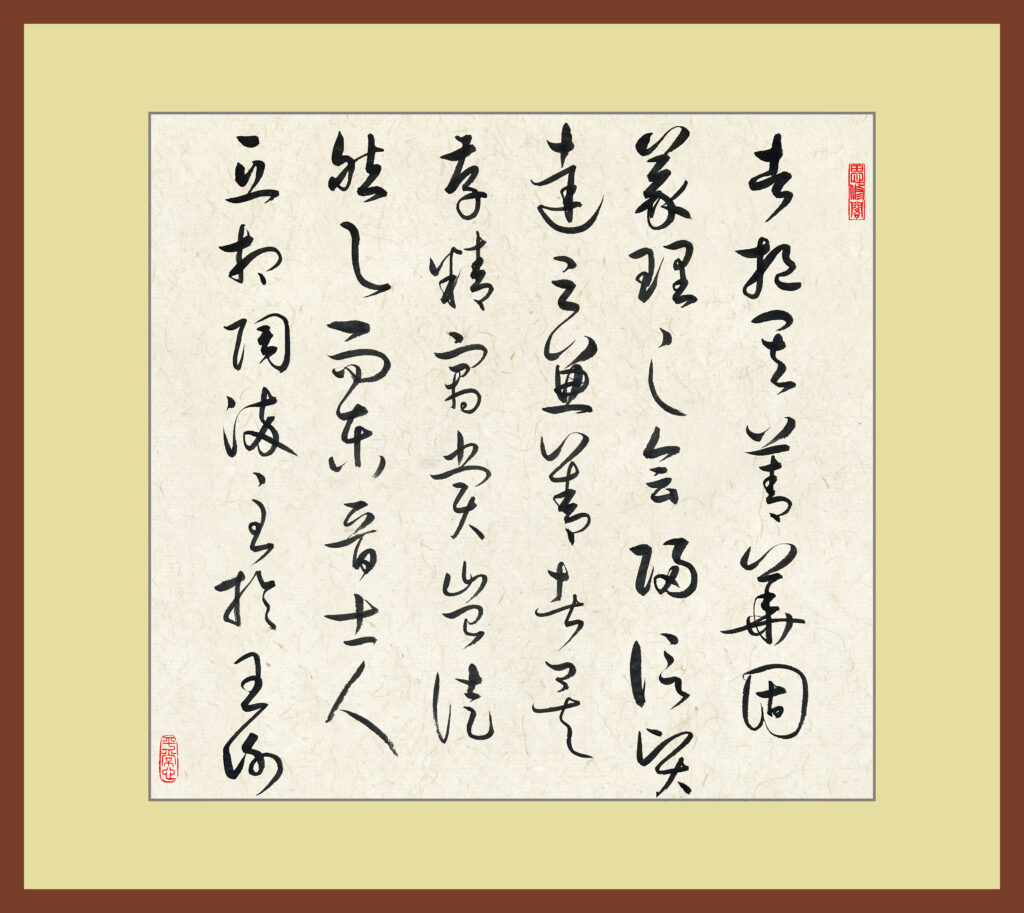 思修閣
者挹其菁華固
義理之會歸信賢
達之兼善者矣
存精寓賞豈徒
然與而東晉士人
互相陶淬至於王謝
平常心